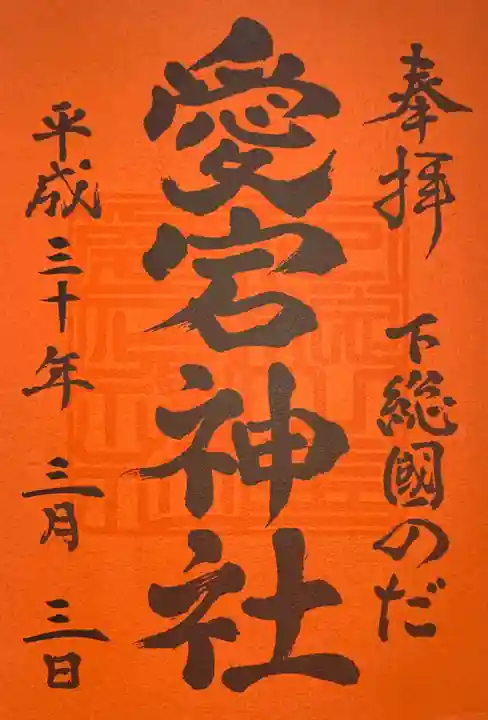 奉拝 下総國のだ
愛宕神社
平成三十年 三月 三日